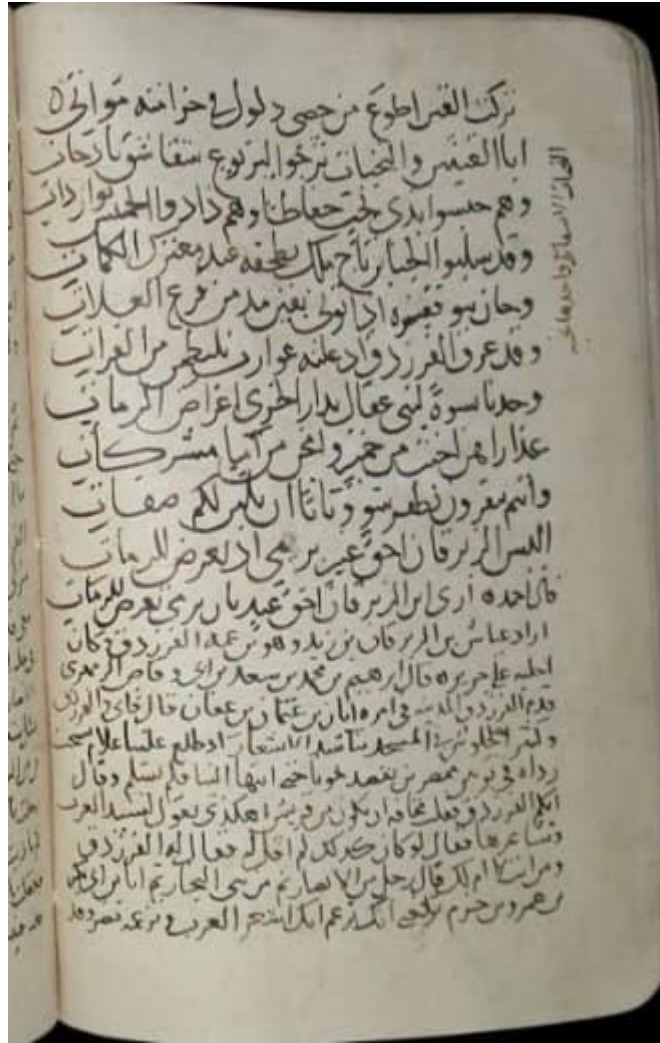 تركت القين اطوع من خصي ذلول في خزامته مواتي
ابا القينين والنخبات ترجوا ليربوع شقاشق باذخات
وهم حبسوا بذي نجب حفاظا وهم ذادوا الخميس بواردات
وقد سلبوا الجبابر تاج ملك بطخفة عند معترك الكمات
وقد عرق الفرزدق اذ علته عوارب يلتطمن من الفرات
وجدنا نسوة لبني عقال بدار الخزي اغراض الرمات
عذارا هن اخبث من حمير وامجن من نساء مشركات
وانتم تنقرون بظفر سوء وتابا ان تلين لكم صفات
اليس الزبرقان احق عير برمي اذ تعرض للرمات
قال احمد ارى ابن الزبرقان احق عبد بان يرمى تعرض للرمات
اراد عياش بن الزبرقان بن زيد وهو بن عمة الفرزدق وكان
على جرير قال ابرهيم بن محمد بن سعد بن ابي وقاص الزهري
قدم الفرزدق المدينة في امره ابان بن عثمن بن عفان قال فاني والفرزدق
وكثير لجلوس في المسجد نتناشد الاشعار اذ طلع علينا غلام شخت
رداه في ثوبين ممصرين يقصد نحونا حتى انتها الينا فلم يسلم وقال
ايكم الفرزدق فقلت مخافة ان يكون من قريش اهكذى تقول لسيد العرب
وشاعرها فقال لو كان كذلك لم اقل له فقال له الفرزدق
ومن انت لا ام لك قال رجل من الانصار ثم من بني النجار ثم انا بن ابي بكر
بن عمرو بن حزم بلغني انك تزعم انك اشعر العرب